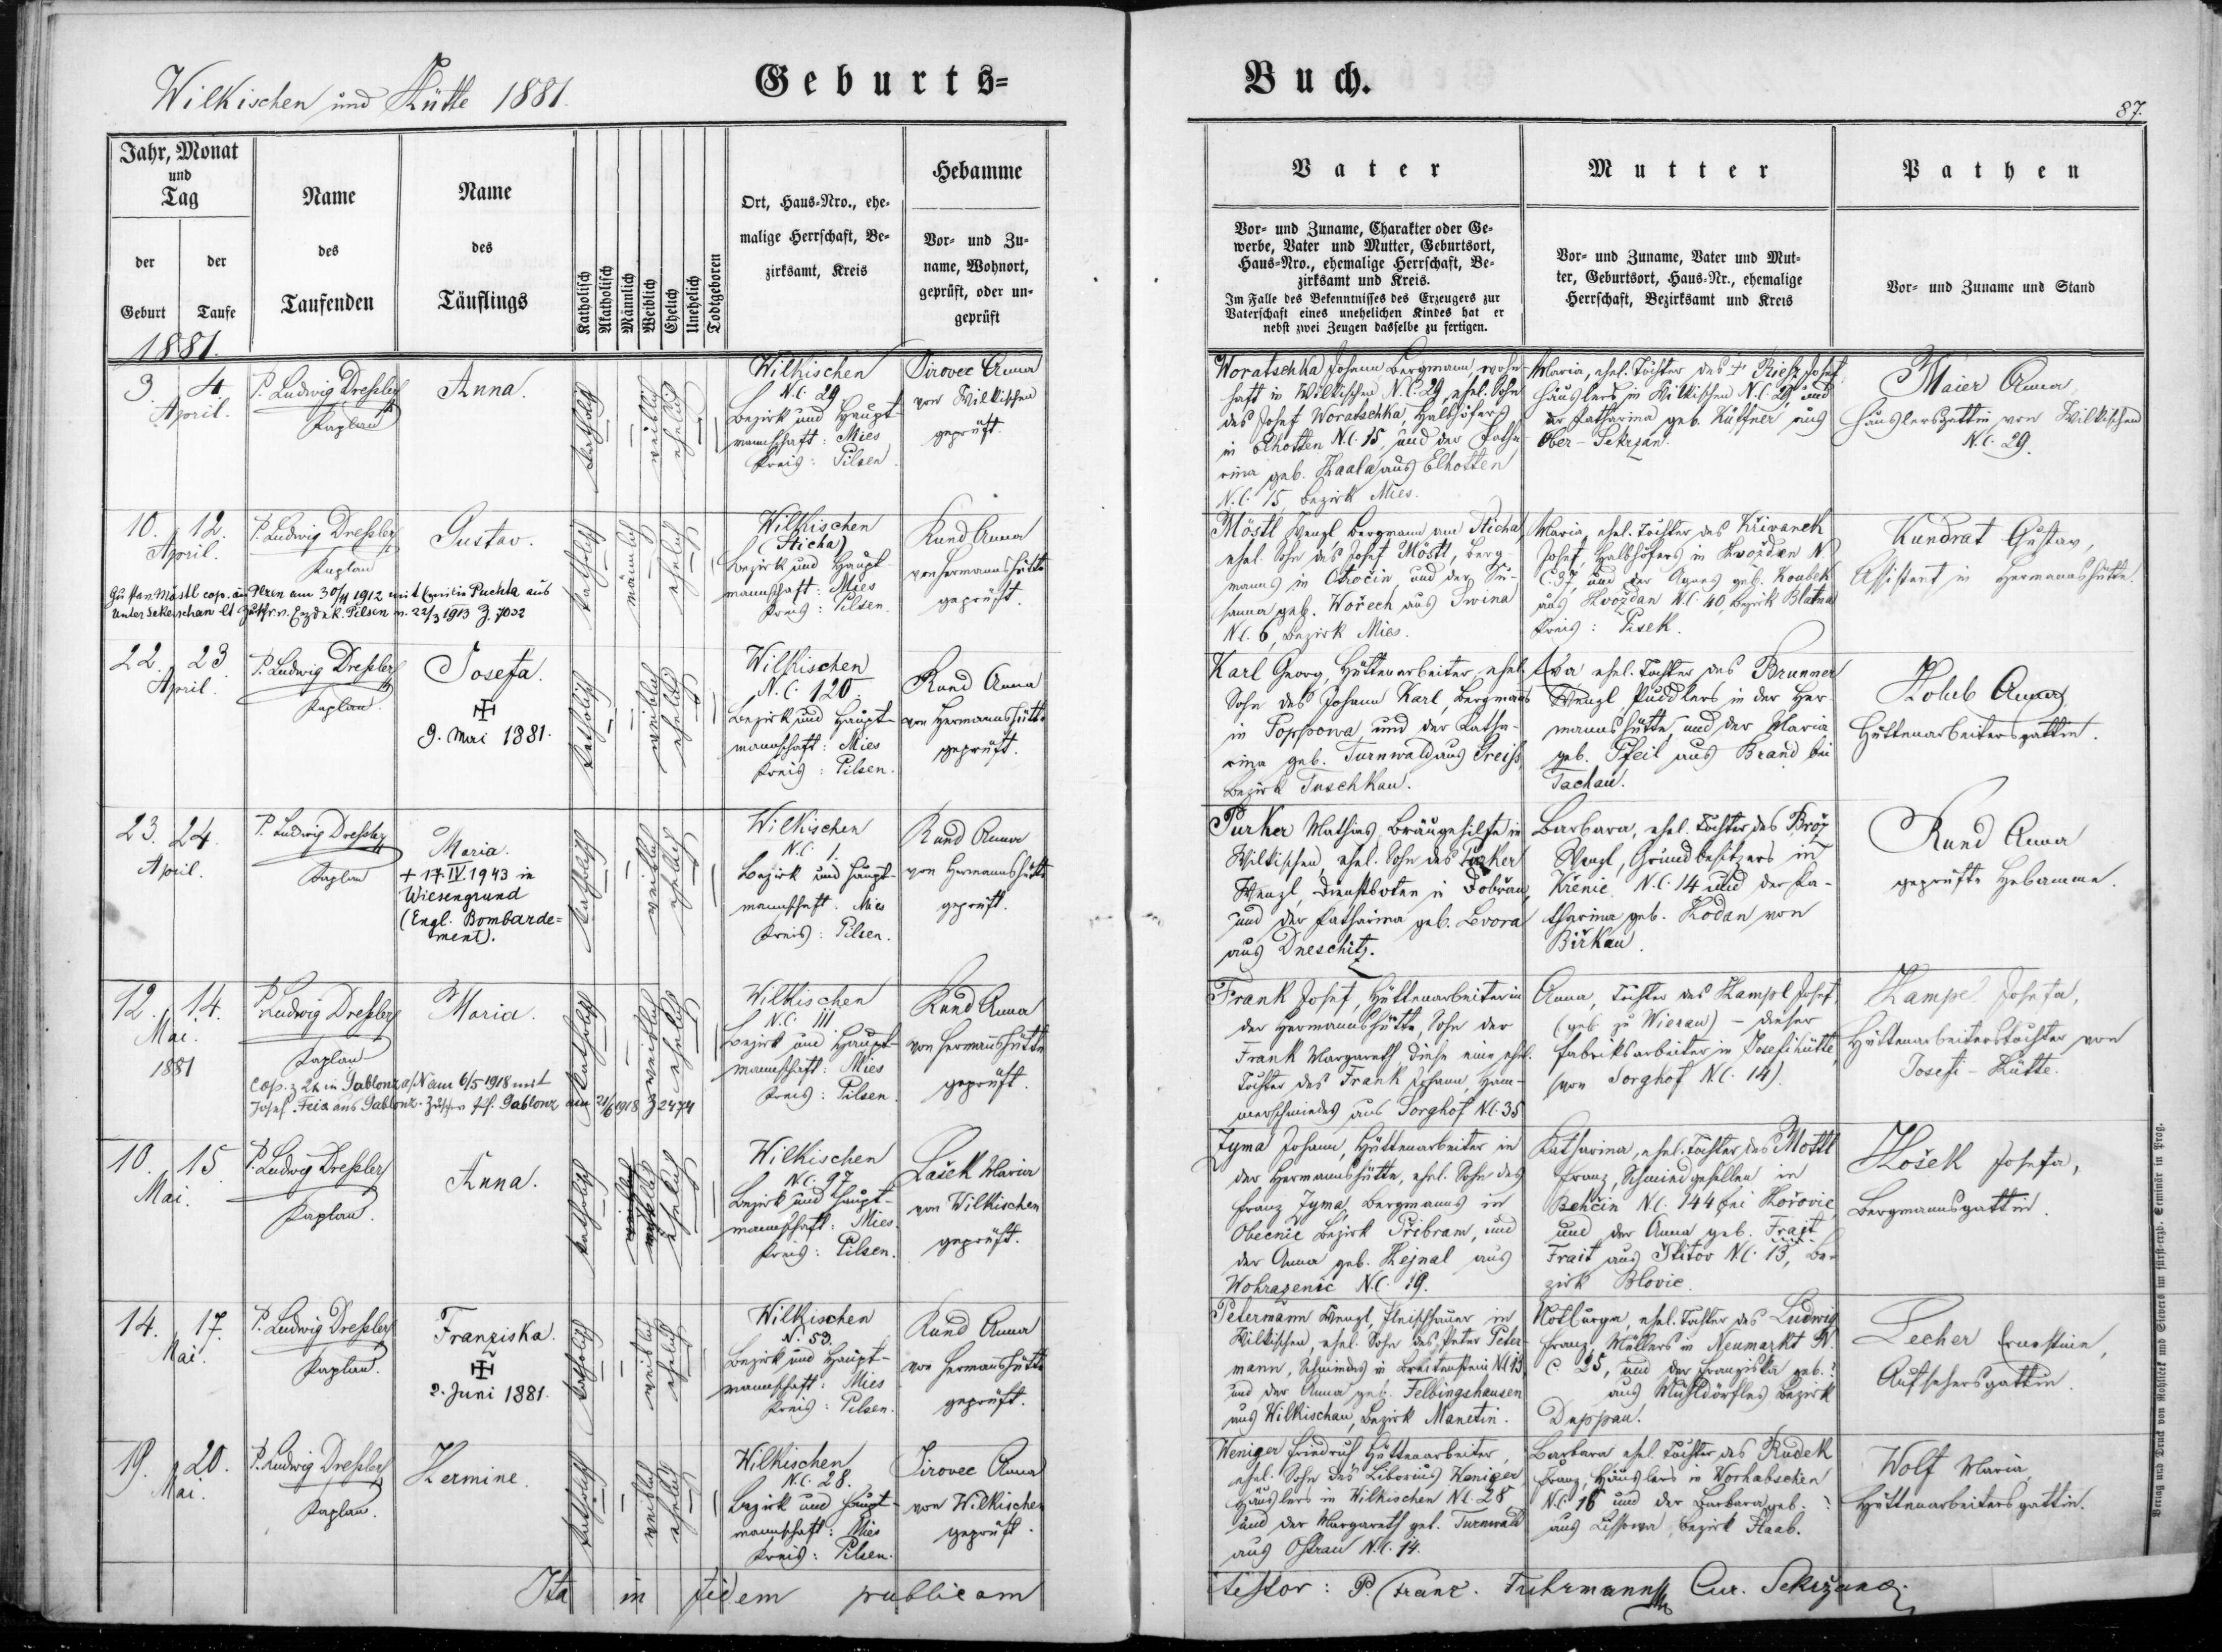 Wilkischen und Hütte 1881.
Geburts-
Buch.
87.
Jahr, Monat
und
Tag
der
Geburt
der
Taufe
Name
des
Taufenden
Name
des
Täuflings
Katholisch
Akatholisch
Männlich
Weiblich
Ehelich
Unehelich
Todtgeboren
Ort, Haus-Nro., ehe-
malige Herrschaft, Be-
zirksamt, Kreis
Hebamme
Vor- und Zu-
name, Wohnort,
geprüft, oder un-
geprüft
Vater
Vor- und Zuname, Charakter oder Ge-
werbe, Vater und Mutter, Geburtsort,
Haus-Nro., ehemalige Herrschaft, Be-
zirksamt und Kreis.
Im Falle des Bekenntnisses des Erzeugers zur
Vaterschaft eines unehelichen Kindes hat er
nebst zwei Zeugen dasselbe zu fertigen.
Mutter
Vor- und Zuname, Vater und Mut-
ter, Geburtsort, Haus-Nr., ehemalige
Herrschaft, Bezirksamt und Kreis
Pathen
Vor- und Zuname und Stand
1881.
3. 4.
April.
P. Ludwig Dreßler
Kaplan
Anna.
katholisch
weiblich
ehelich
Wilkischen
N.C. 29
Bezirk und Haupt-
mannschaft: Mies
Kreis: Pilsen.
Jirovec Anna
von Wilkischen
geprüft.
Woratschka Johann Bergmann, wohn-
haft in Wilkischen N.C. 29, ehel. Sohn
des Josef Woratschka, Halbhöfers
in Elhotten N.C. 15 und der Katha-
rina geb. Kaala aus Elhotten
N.C. 15, Bezirk Mies.
Maria, ehel. Tochter des † Josef
Häuslers in Wilkischen N.C. 29 und
der Katharina geb. Küffner aus
Ober-Sekrzan.
Maier Anna
Häuslersgattin von Wilkischen
N.C. 29.
10. 12.
April.
P. Ludwig Dreßler
Kaplan
Gustav.
katholisch
männlich
ehelich
Wilkischen
(Sticha)
Bezirk und Haupt-
mannschaft: Mies
Kreis: Pilsen.
Rund Anna
von Hermannshütte
geprüft.
Möstl Wenzl Bergmann am Sticha,
ehel. Sohn des Josef Möstl, Berg-
manns in Otročin und der Su-
sanna geb. Wořech aus Swina
N.C. 6, Bezirk Mies.
Maria, ehel. Tochter des Křivanek
Josef, Halbhöfers in Hvoždan N.
C. 37 und der Agnes geb. Koubek
aus Hvoždan N.C. 40, Bezirk Blatna
Kreis: Pisek.
Kundrat Gustav,
Assistent in Hermannshütte.
Gustav Möstl cop. in Pilsen am 30/4 1912 mit Emilie Puchta aus
Unter Sekerschan lt Zuschr. v. Erzdek. Pilsen v. 22/3 1913 Z. 7032
22. 23.
April.
P. Ludwig Dreßler
Kaplan.
Josefa.
9. Mai 1881.
katholisch
weiblich
ehelich
Wilkischen
N.C. 120.
Bezirk und Haupt-
mannschaft: Mies
Kreis: Pilsen.
Rund Anna
von Hermannshütte
geprüft.
Karl Georg, Hüttenarbeiter, ehel.
Sohn des Johann Karl, Bergmanns
in Poppowa und der Katha-
rina geb. Turnwald aus Preiss,
Bezirk Tuschkau.
Eva ehel. Tochter des Brunner
Wenzl, Puddlers in der Her-
mannshütte, und der Maria
geb. Pfeil aus Brand bei
Tachau.
Holub Anna
Hüttenarbeitersgattin.
23. 24.
April.
P. Ludwig Dreßler
Kaplan
Maria.
+ 17.IV.1943 in
Wiesengrund
(Engl. Bombarde-
ment).
katholisch
weiblich
ehelich
Wilkischen
N.C. 1.
Bezirk und Haupt-
mannschaft: Mies
Kreis: Pilsen.
Rund Anna
von Hermannshütte
geprüft.
Purker Mathias, Bräugehilfe in
Wilkischen, ehel. Sohn des Purker
Wenzl, Dienstboten in Dobřan,
und der Katharina geb. Levora
aus Dneschitz.
Barbara, ehel. Tochter des Brož
Wenzl, Grundbesitzers in
Křenic N.C. 14 und der Ka-
tharina geb. Kodan von
Birkau.
Rund Anna
geprüfte Hebamme.
12. 14.
Mai.
1881
P. Ludwig Dreßler
Kaplan
Maria.
katholisch
weiblich
ehelich
Wilkischen
N.C. 111
Bezirk und Haupt-
mannschaft: Mies
Kreis: Pilsen.
Rund Anna
von Hermannshütte
geprüft.
Frank Josef, Hüttenarbeiter in
der Hermannshütte, Sohn der
Frank Margareth, diese eine ehel.
Tochter des Frank Johann, Ham-
merschmiedes aus Sorghof N.C. 35
Anna, Tochter des Hampl Josef,
(geb. zu Wierau) - dieser
Fabriksarbeiter in Josefihütte,
(von Sorghof N.C. 14).
Hampl Josefa,
Hüttenarbeiterstochter von
Josefi-Hütte.
Cop. z 2x in Gablonz a/N am 6/5 1918 mit
Josef Feix aus Gablonz. Zuschr. Gablonz am 21/6 1918 Z 2474
10. 15.
Mai.
P. Ludwig Dreßler
Kaplan.
Anna.
katholisch
weiblich
ehelich
Wilkischen
N.C. 97
Bezirk und Haupt-
mannschaft: Mies.
Kreis: Pilsen.
Lašek Maria
von Wilkischen
geprüft.
Zyma Johann, Hüttenarbeiter in
der Hermannshütte, ehel. Sohn des
Franz Zyma, Bergmanns in
Obecnic Bezirk Přibram, und
der Anna geb. Hejnal aus
Wohrazenic N.C. 19.
Katharina, ehel. Tochter des Mottl
Franz, Schmiedgesellen in
Běhčin N.C. 144 bei Hořovic
und der Anna geb. Frait
Frait aus Štitov N.C. 13, Be-
zirk Blovic.
Košek Josefa,
Bergmannsgattin.
14. 17.
Mai.
P. Ludwig Dreßler
Kaplan.
Franziska.
2. Juni 1881.
katholisch
weiblich
ehelich
Wilkischen
N. 53.
Bezirk und Haupt-
mannschaft: Mies
Kreis: Pilsen.
Rund Anna
von Hermannshütte
geprüft.
Petermann Wenzl, Fleischhauer in
Wilkischen, ehel. Sohn des Peter Peter-
mann, Schmiedes in Breitenstein N.C. 13
und der Anna geb. Felbingshausen
aus Wilkischau, Bezirk Manetin.
Notburga, ehel. Tochter des Ludwig
Franz, Müllers in Neumarkt N.
C. 25, und der Franziska geb. ?
aus Mühldörfles, Bezirk
Deppau.
Lecher Ernestine,
Aufsehersgattin.
19. 20.
Mai.
P. Ludwig Dreßler
Kaplan.
Hermine.
katholisch
weiblich
ehelich
Wilkischen
N.C. 28.
Bezirk und Haupt-
mannschaft: Mies
Kreis: Pilsen.
Jirovec Anna
von Wilkischen
geprüft.
Weniger Friedrich, Hüttenarbeiter,
ehel. Sohn des Liborius Weniger
Häuslers in Wilkischen N.C. 28
und der Margareth geb. Turnwald
aus Ostrau N.C. 14.
Barbara ehel. Tochter des Rudek
Franz, Häuslers in Worhabschen
N.C. 16 und der Barbara geb. ?
aus Lissowa, Bezirk Staab.
Wolf Maria,
Hüttenarbeitersgattin.
Ita in fidem publicam
testor: P. Franz. Fuhrmann Cur. Sekržano.
Verlag und Druck von Rohlicek und Sievers im fürst-erzb. Seminär in Prag.